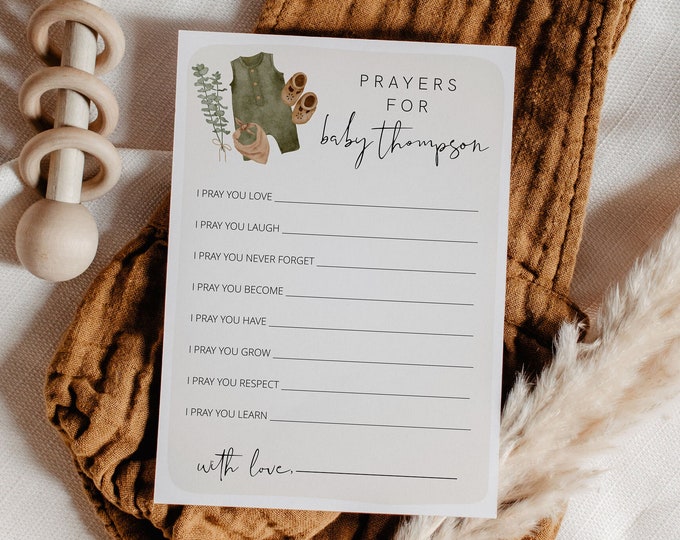 PRAYERS
FOR
baby thompson
I PRAY YOU LOVE
I PRAY YOU LAUGH
I PRAY YOU NEVER FORGET
I PRAY YOU BECOME
I PRAY YOU HAVE
I PRAY YOU GROW
I PRAY YOU RESPECT
I PRAY YOU LEARN
with love,